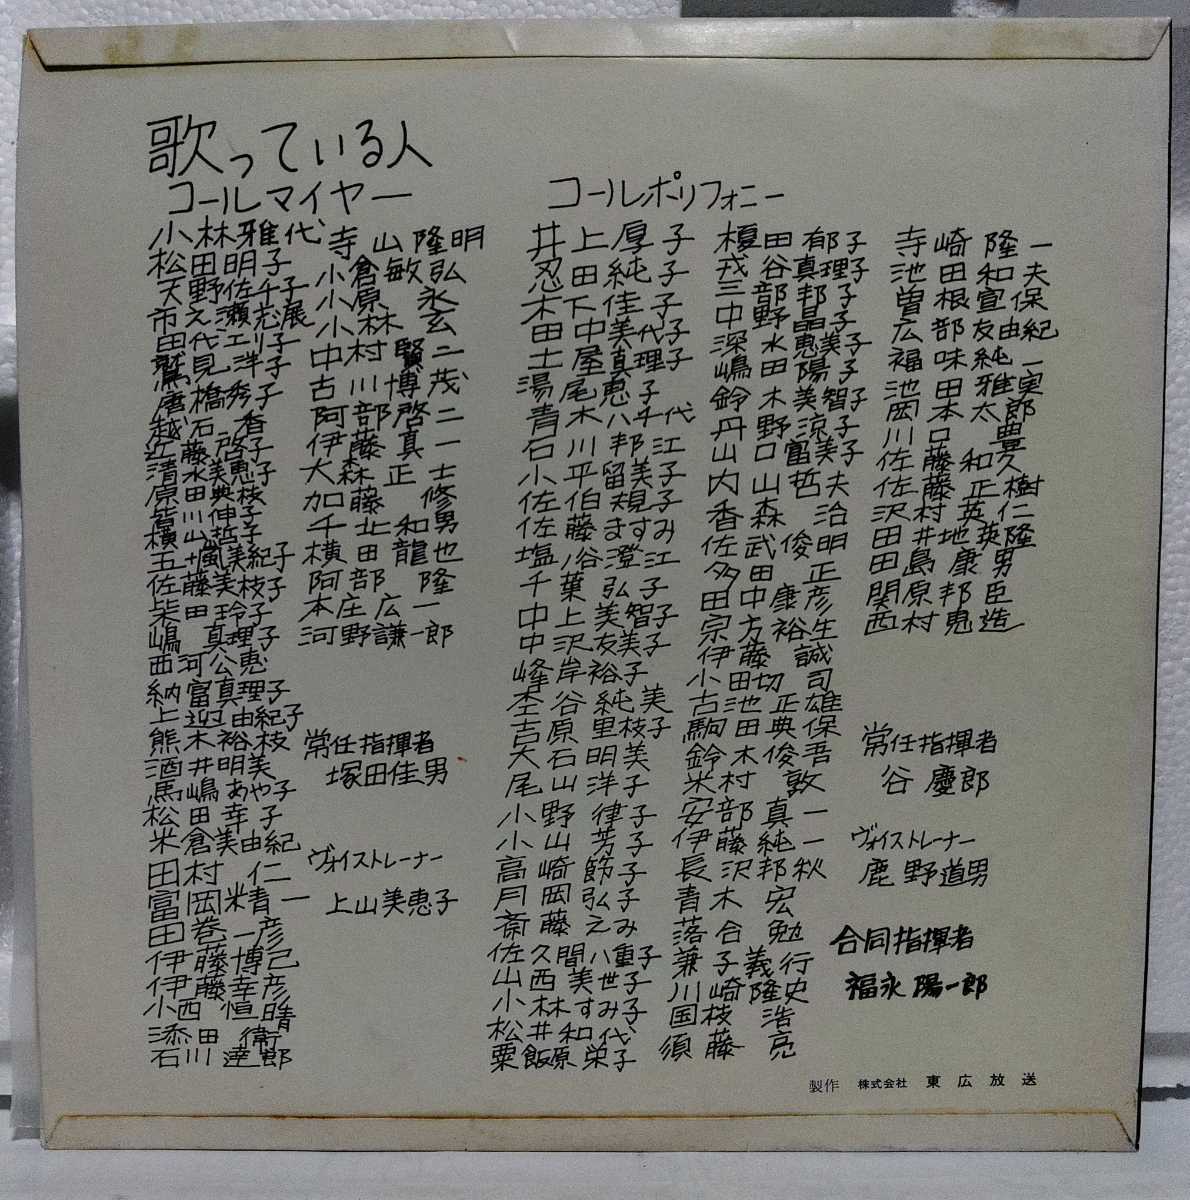 歌っている人
コールマイヤー
小林雅代
松田明子
天野佐千子
市之瀬志展
田代江利子
鷲見洋子
高橋秀子
越石香
近藤啓子
清水美恵子
原田典枝
皆川伸子
横山哲子
五十嵐美紀子
佐藤美枝子
柴田玲子
嶋真理子
西河公恵
納富真理子
上迎由紀子
熊木裕枝
酒井明美
馬嶋あや子
松田幸子
米倉美由紀
田村仁
富岡精一
田巻一彦
伊藤博己
伊藤幸彦
小西恒晴
添田衛
石川達郎
寺山隆明
小倉敏弘
小原永
小林玄
中村賢二
古川博茂
阿部啓二
伊藤真一
大森正士
加藤修
千北和男
横田龍也
阿部隆
本庄広一
河野謙一郎
常任指揮者
塚田佳男
ヴォイストレーナー
上山美恵子
コールポリフォニー
井上厚子
忍田純子
木下佳子
田中美代子
土屋真理子
湯尾恵子
青木八千代
石川邦江
小平留美子
佐伯規子
佐藤ますみ
塩谷澄江
千葉弘子
中上美智子
中沢友美子
峰岸裕子
杢谷純美
吉原里枝子
大石明美
尾山洋子
小野律子
小山芳子
高崎節子
月岡弘子
斎藤えみ
佐久間八重子
山西美世子
小林すみ子
松井和代
粟飯原栄子
榎田郁子
戎谷真理子
三部邦子
中野晶子
深水恵美子
嶋田陽子
鈴木美智子
丹野涼子
山口富美子
内山哲夫
香森治
佐武俊明
多田正
田中康彦
宗方裕生
伊藤誠
小田切司
古池正雄
駒田典保
鈴木俊吾
米村敦
安部真一
伊藤純一
長沢邦秋
青木宏
落合勉
兼子義行
川崎隆史
国枝浩
須藤亮
寺崎隆一
池田和夫
曽根宣保
広部友由紀
福味純一
池田雅実
岡本太郎
川口豊
佐藤和久
佐藤正樹
沢村英仁
田井地英隆
田島康男
関原邦臣
西村恵造
常任指揮者
谷慶郎
ヴォイストレーナー
鹿野道男
合同指揮者
福永陽一郎
製作 株式会社 東広放送